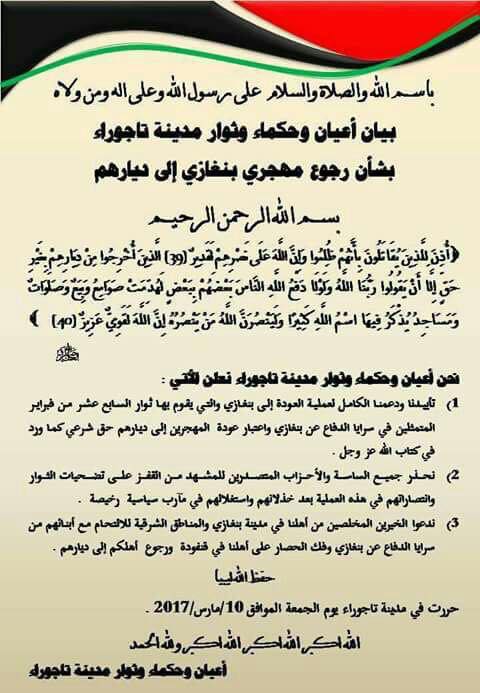 باسم الله والصلاة والسلام على رسول الله وعلى اله ومن ولاه
بيان أعيان وحكماء وثوار مدينة تاجوراء
بشأن رجوع مهجري بنغازي إلى ديارهم
بسم الله الرحمن الرحيم
﴿أُذِنَ لِلَّذِينَ يُقَاتَلُونَ بِأَنَّهُمْ ظُلِمُوا وَإِنَّ اللَّهَ عَلَى نَصْرِهِمْ لَقَدِيرٌ (39) الَّذِينَ أُخْرِجُوا مِنْ دِيَارِهِمْ بِغَيْرِ
حَقٍّ إِلَّا أَنْ يَقُولُوا رَبُّنَا اللَّهُ وَلَوْلَا دَفْعُ اللَّهِ النَّاسَ بَعْضَهُمْ بِبَعْضٍ لَهُدِّمَتْ صَوَامِعُ وَبِيَعٌ وَصَلَوَاتٌ
وَمَسَاجِدُ يُذْكَرُ فِيهَا اسْمُ اللَّهِ كَثِيرًا وَلَيَنْصُرَنَّ اللَّهُ مَنْ يَنْصُرُهُ إِنَّ اللَّهَ لَقَوِيٌّ عَزِيزٌ (40) ﴾
نحن أعيان وحكماء وثوار مدينة تاجوراء نعلن للآتي :
1) تأييدنا ودعمنا الكامل لعملية العودة إلى بنغازي والتي يقوم بها ثوار السابع عشر من فبراير
المتمثلين في سرايا الدفاع عن بنغازي واعتبار عودة المهجرين إلى ديارهم حق شرعي كما ورد
في كتاب الله عز وجل .
2) نحذر جميع الساسة والأحزاب المتصدرين للمشهد من القفز على تضحيات الثوار
وانتصاراتهم في هذه العملية بعد خذلانهم واستغلالهم في مآرب سياسية رخيصة .
3) ندعوا الخيرين المخلصين من أهلنا في مدينة بنغازي والمناطق الشرقية للالتحام مع أبنائهم من
سرايا الدفاع عن بنغازي وفك الحصار على أهلنا في قنفودة ورجوع أهلكم إلى ديارهم .
حفظ الله ليبيا
حررت في مدينة تاجوراء يوم الجمعة الموافق 10/مارس/2017 .
الله اكبر الله اكبر الله اكبر ولله الحمد
أعيان وحكماء وثوار مدينة تاجوراء